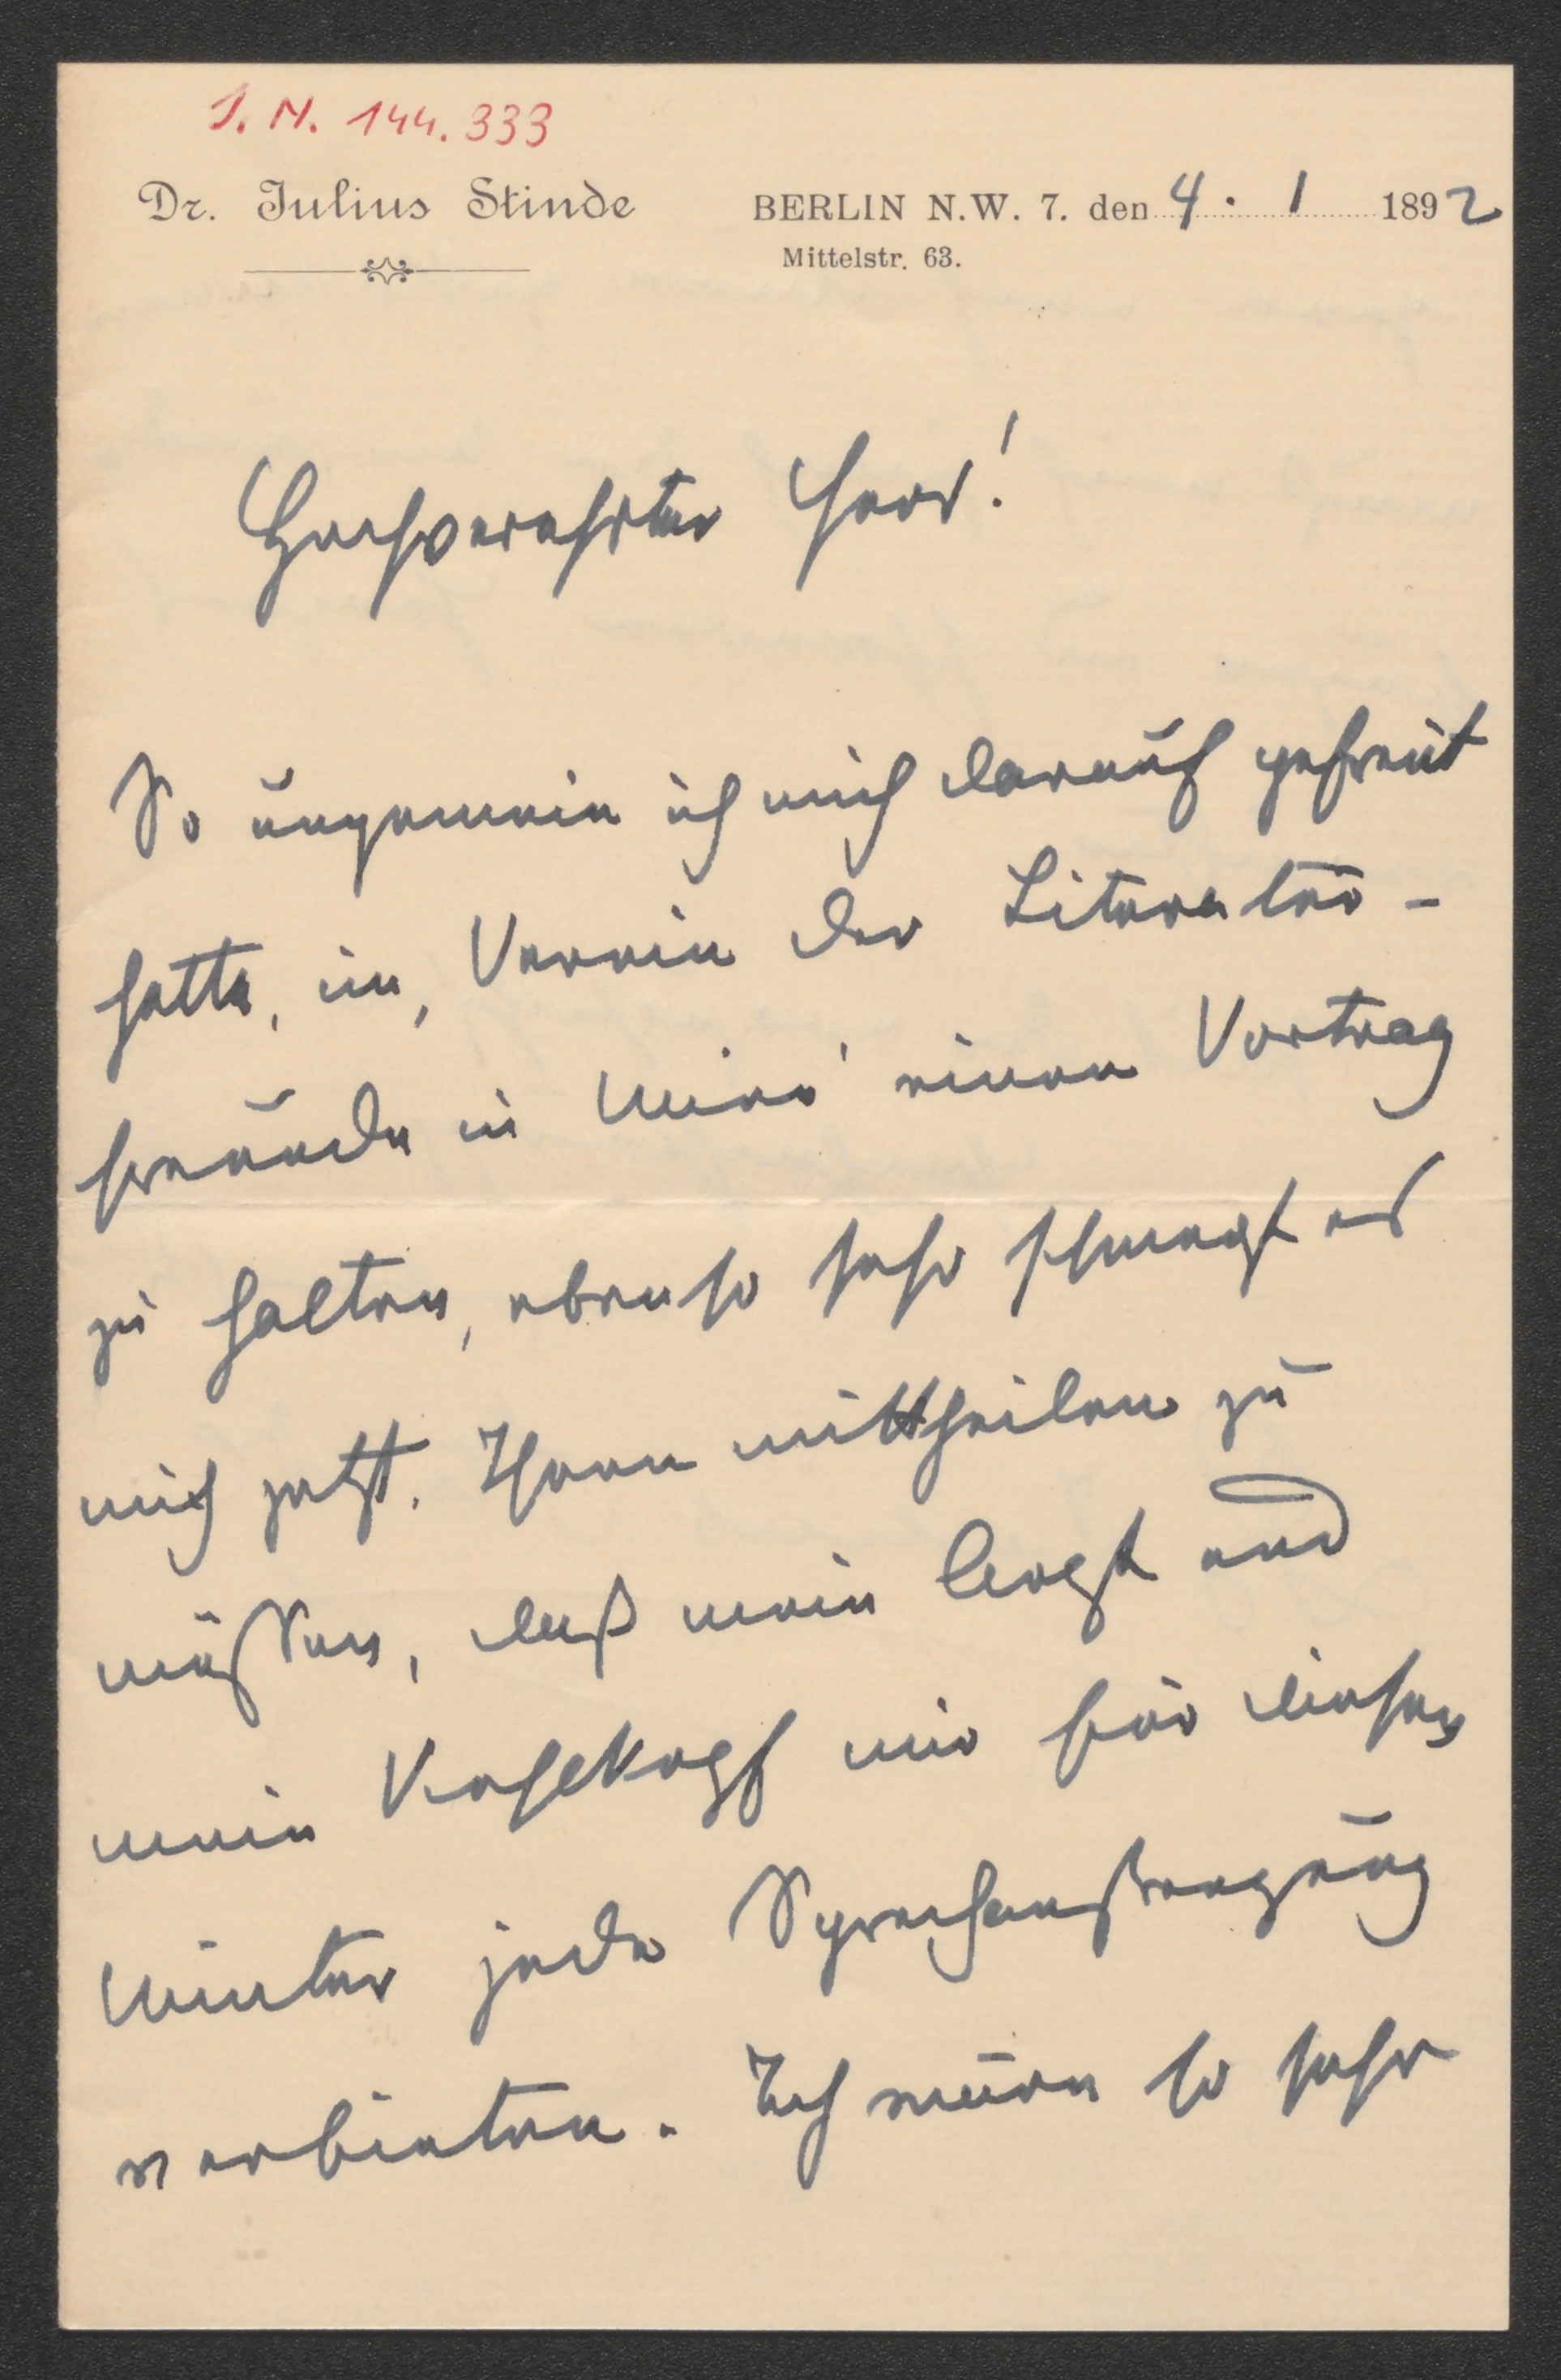 J. N. 144.333
Dr. Julius Stinde
BERLIN N.W. 7. den 4. 1 1892
Mittelstr. 63.
Hochverehrter Herr!
So ungemein ich mich darauf gefreut
hatte, im, Verein der Literatur-
freunde in Wien' einen Vortrag
zu halten, ebenso sehr schmerzt es
mich jetzt, Ihnen mittheilen zu
müssen, daß mein Arzt und
mein Kehlkopf mir für diesen
Winter jede Sprechanstrengung
verbieten. Ich so sehr